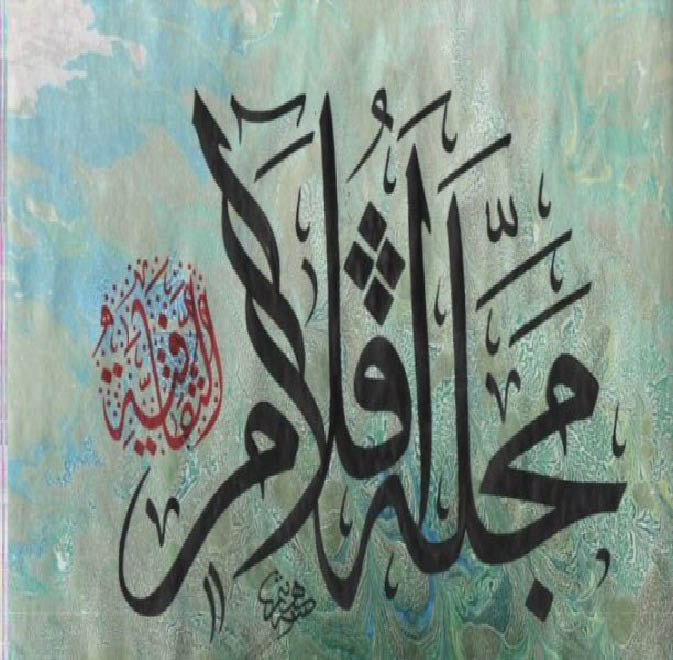 مَجَلَّة أَقلام
الثقافية